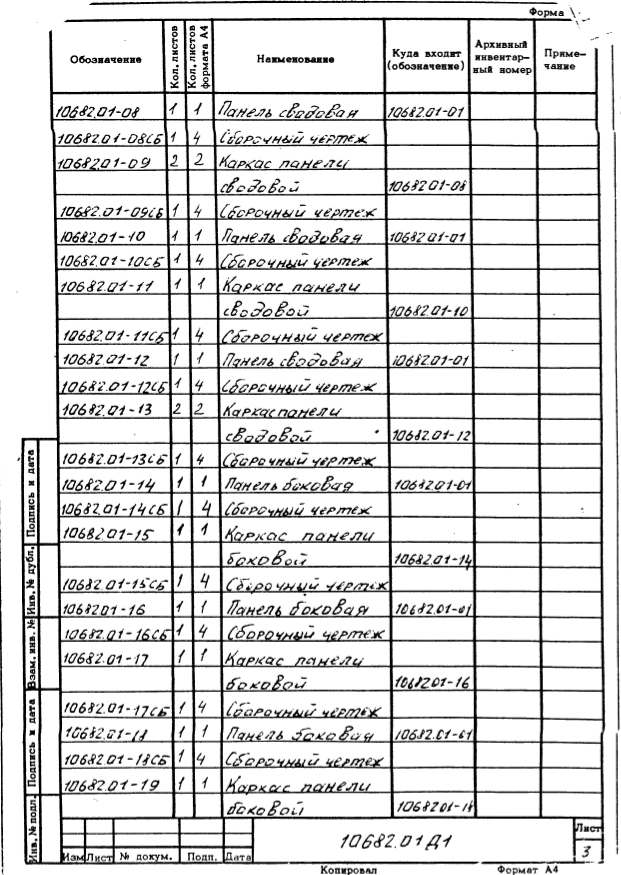 Форма
Обозначение Кол. листов Кол. листов формата А4 Наименование Куда входит (обозначение) Архивный инвентарный номер Примечание
10682.01-08 1 1 Панель сводовая 10682.01-01
10682.01-08СБ 1 4 Сборочный чертеж
10682.01-09 2 2 Каркас панели
сводовой 10682.01-08
10682.01-09СБ 1 4 Сборочный чертеж
10682.01-10 1 1 Панель сводовая 10682.01-01
10682.01-10СБ 1 4 Сборочный чертеж
10682.01-11 1 1 Каркас панели
сводовой 10682.01-10
10682.01-11СБ 1 4 Сборочный чертеж
10682.01-12 1 1 Панель сводовая 10682.01-01
10682.01-12СБ 1 4 Сборочный чертеж
10682.01-13 2 2 Каркас панели
сводовой 10682.01-12
10682.01-13СБ 1 4 Сборочный чертеж
10682.01-14 1 1 Панель боковая 10682.01-01
10682.01-14СБ 1 4 Сборочный чертеж
10682.01-15 1 1 Каркас панели
боковой 10682.01-14
10682.01-15СБ 1 4 Сборочный чертеж
10682.01-16 1 1 Панель боковая 10682.01-01
10682.01-16СБ 1 4 Сборочный чертеж
10682.01-17 1 1 Каркас панели
боковой 10682.01-16
10682.01-17СБ 1 4 Сборочный чертеж
10682.01-18 1 1 Панель боковая 10682.01-01
10682.01-18СБ 1 4 Сборочный чертеж
10682.01-19 1 1 Каркас панели
боковой 10682.01-18
Подпись и дата
Инв. № дубл.
Взам. инв. №
Подпись и дата
Инв. № подл.
10682.01Д1
Лист
3
Изм Лист № докум. Подп. Дата
Копировал Формат А4